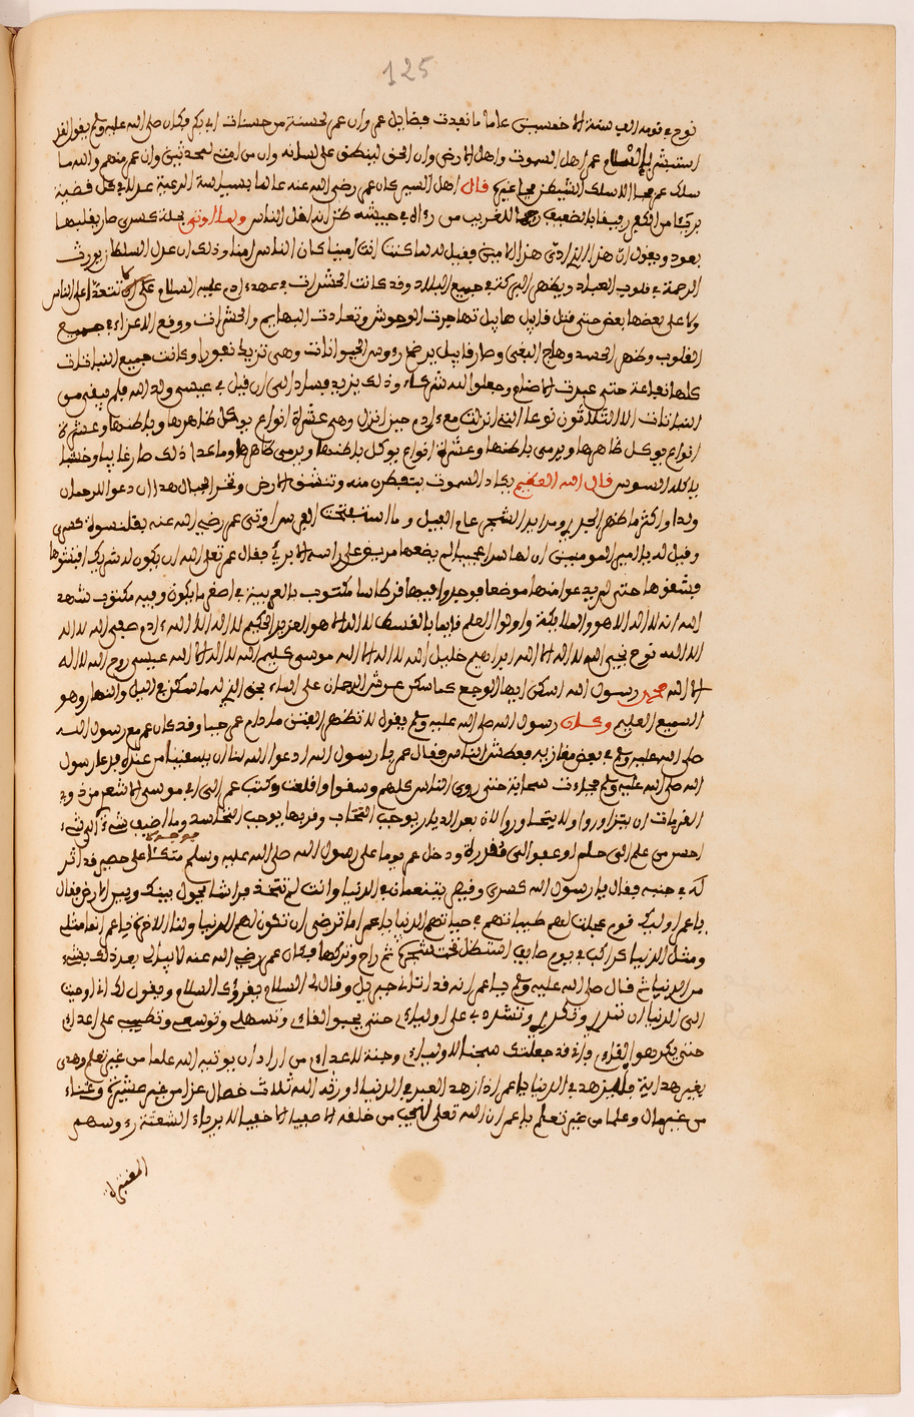 125
نوح في قومه الف سنة الا خمسين عاما ما نفدت فضايل عمر وان عمر لحسنة من حسنات ابي بكر وكان صلى الله عليه وسلم يقول لقد
استبشر باسلام عمر اهل السموت واهل الارض وان الحق لينطق على لسانه وان من امتي لمحدثين وان عمر منهم والله ما
سلك عمر فجا الا سلك الشيطن فجا غيره قال اهل السير كان عمر رضي الله عنه عالما بسياسة الرعية عدلا في كل قضية
بريئا من الكبر رفيقا بالضعيف رحيما للغريب من رءاه في جيشه ظن انه اقل الناس ولما اوتي بحلة كسرى صار يقلبها
بعود ويقول ان هذا الذي ادى هذا لامين فقيل له لما كنت انت امينا كان الناس امنا وذلك ان عدل السلطان يورث
الرحمة في قلوب العباد ويظهر البركة في جميع البلاد وقد كانت الحشرات في عهد ءادم عليه السلام لا تتعدا على الناس
ولا على بعضها بعض حتى قتل قابيل هابيل تهاجرت الوحوش وتعادت البهايم والحشرات ووقع الاعداء في جميع
القلوب وظهر الحسد وهاج البغي وصار قابيل يرضخ رووس الحيوانات وهي تزيد نفورا وكانت جميع النباتات
كلها نفاعة حتى عبدت الاصنام وجعلوا لله شركاء وذلك يزيد فسادا الى ان قيل في عيسى ولد الله فلم يبقى من
النباتات الا الثلاثون نوعا التي انزلت مع ءادم حين انزل وهي عشرة انواع يوكل ظاهرها وباطنها وعشرة
انواع يوكل ظاهرها ويرمى باطنها وعشرة انواع يوكل باطنها ويرمى ظاهرها وما عدا ذلك صار غابيا وخشبا
ياكله السوس قال الله العظيم يكاد السموت يتفطرن منه وتنشق الارض وتخر الجبال هدا ان دعوا للرحمان
ولدا واكثر ما ظهر الجدري ومراير الشجر عام الفيل وما استفتحت الفرس اوتي عمر رضي الله عنه بقلنسوة كسرى
وقيل له يا امير المومنين ان لها سرا عجيبا لم يضعها مريض على راسه الا بريء فقال عمر تعلى الله ان يكون له شريك افتشوها
فشقوها حتى لم يدعوا منها موضعا فوجدوا فيها قرطاسا مكتوب بالعربية في اصغر ما يكون وفيه مكتوب شهد
الله انه لا اله الا هو والملايكة واولوا العلم قايما بالقسط لا اله الا هو العزيز الحكيم لا اله الا الله ءادم صفي الله لا اله
الا الله نوح نجي الله لا اله الا الله ابراهيم خليل الله لا اله الا الله موسى كليم الله لا اله الا الله عيسى روح الله لا اله
الا الله محمد رسول الله اسكن ايها الوجع كما سكن عرش الرحمان على الماء بحق الذي له ما سكن في اليل والنهار وهو
السميع العليم وكان رسول الله صلى الله عليه وسلم يقول لا تظهر الفتن ما دام عمر حيا وقد كان عمر مع رسول الله
صلى الله عليه وسلم في بعض مغازيه فعطش الناس فقال عمر يا رسول الله ادعوا الله لنا ان يسقينا من عنده فدعا رسول
الله صلى الله عليه وسلم فجاءت سحابة حتى روى الناس كلهم وسقوا واقلعت وكتب عمر الى ابي موسى الاشعري مر ذوي
القربات ان يتزاوروا ولا يتجاوروا لان بعد الديار يوجب التحاب وقربها يوجب التحاسد وما اضيف شيء الى شيء
احسن من علم الى حلم او عفو الى قدرة ودخل عمر يوما على رسول الله صلى الله عليه وسلم فوجده متكئا على حصير قد اثر
له في جنبه فقال يا رسول الله كسرى وقيصر يتنعمان في الدنيا وانت لم تتخذ فراشا يحول بينك وبين الارض فقال
يا عمر اوليك قوم عجلت لهم طيباتهم في حياتهم الدنيا يا عمر اما ترضى ان تكون لهم الدنيا ولنا الاخرة يا عمر انما مثلي
ومثل الدنيا كراكب في يوم صايف استظل تحت شجرة ثم راح وتركها فكان عمر رضي الله عنه لا يبالي بعد ذلك بشيء
من الدنيا قال صلى الله عليه وسلم يا عمر انه قد اتاني جبريل وقال لي السلام يقرؤك السلام ويقول لك اني اوحيت
الى الدنيا ان تمرري وتكدري وتشددي على اوليائي حتى يحبوا لقائي وتسهلي وتوسعي وتطيبي على اعدائي
حتى يكرهوا لقائي فاني قد جعلتك سجنا لاوليائي وجنة لاعدائي من اراد ان يوتيه الله علما من غير تعلم وهدى
بغير هداية فليزهد في الدنيا يا عمر اذا زهد العبد في الدنيا اورثه الله ثلاث خصال عزا من غير عشيرة وغناء
من غير مال وعلما من غير تعلم يا عمر ان الله تعلى لا يحب من خلقه الا صفيا الا خفيا الابرياء الشعثة رءوسهم
المغبرة